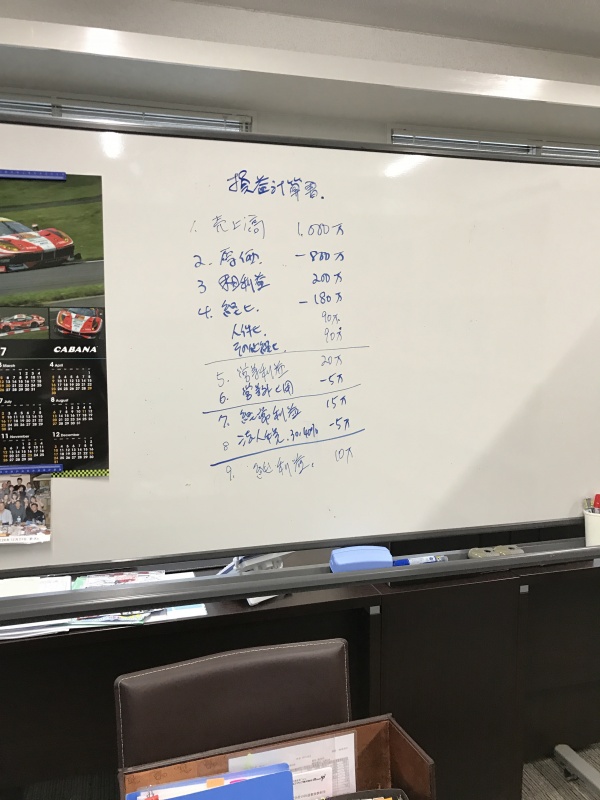 損益計算書.
1. 売上高 1,000万
2. 原価. -800万
3 粗利益 200万
4. 経ヒ. -180万
人件ヒ. 90万.
その他経ヒ. 90万
5. 営業利益 20万
6. 営業外ヒ用 -5万
7. 経常利益 15万
8 法人税. 30.40% -5万
9. 純利益. 10万
7
CABANA
3 March
4 April
7 July
8 August
11 November
12 December